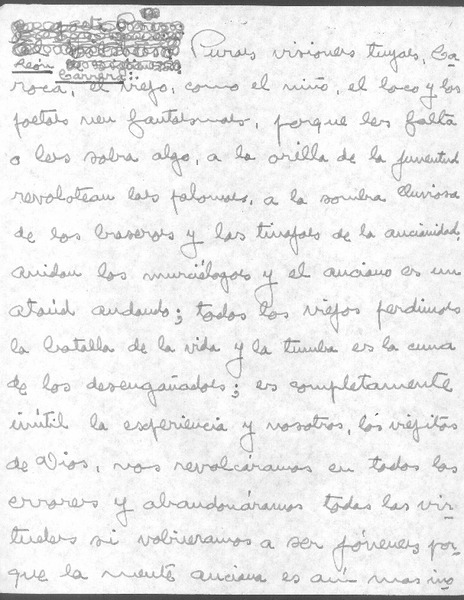 León
Carrera:
Puras visiones tuyas, Ca-
roca, el viejo, como el niño, el loco y los
poetas ven fantasmas, porque les falta
o les sobra algo, a la orilla de la juventud
revolotean las palomas, a la sombra lluviosa
de los braseros y las tinajas de la ancianidad,
anidan los murciélagos y el anciano es un
ataúd andando; todos los viejos perdimos
la batalla de la vida y la tumba es la cuna
de los desengañados; es completamente
inútil la experiencia y nosotros, los viejitos
de Dios, nos revolcáramos en todos los
errores y abandonáramos todas las vir-
tudes si volvieramos a ser jóvenes, por-
que la mente anciana es aún mas ino